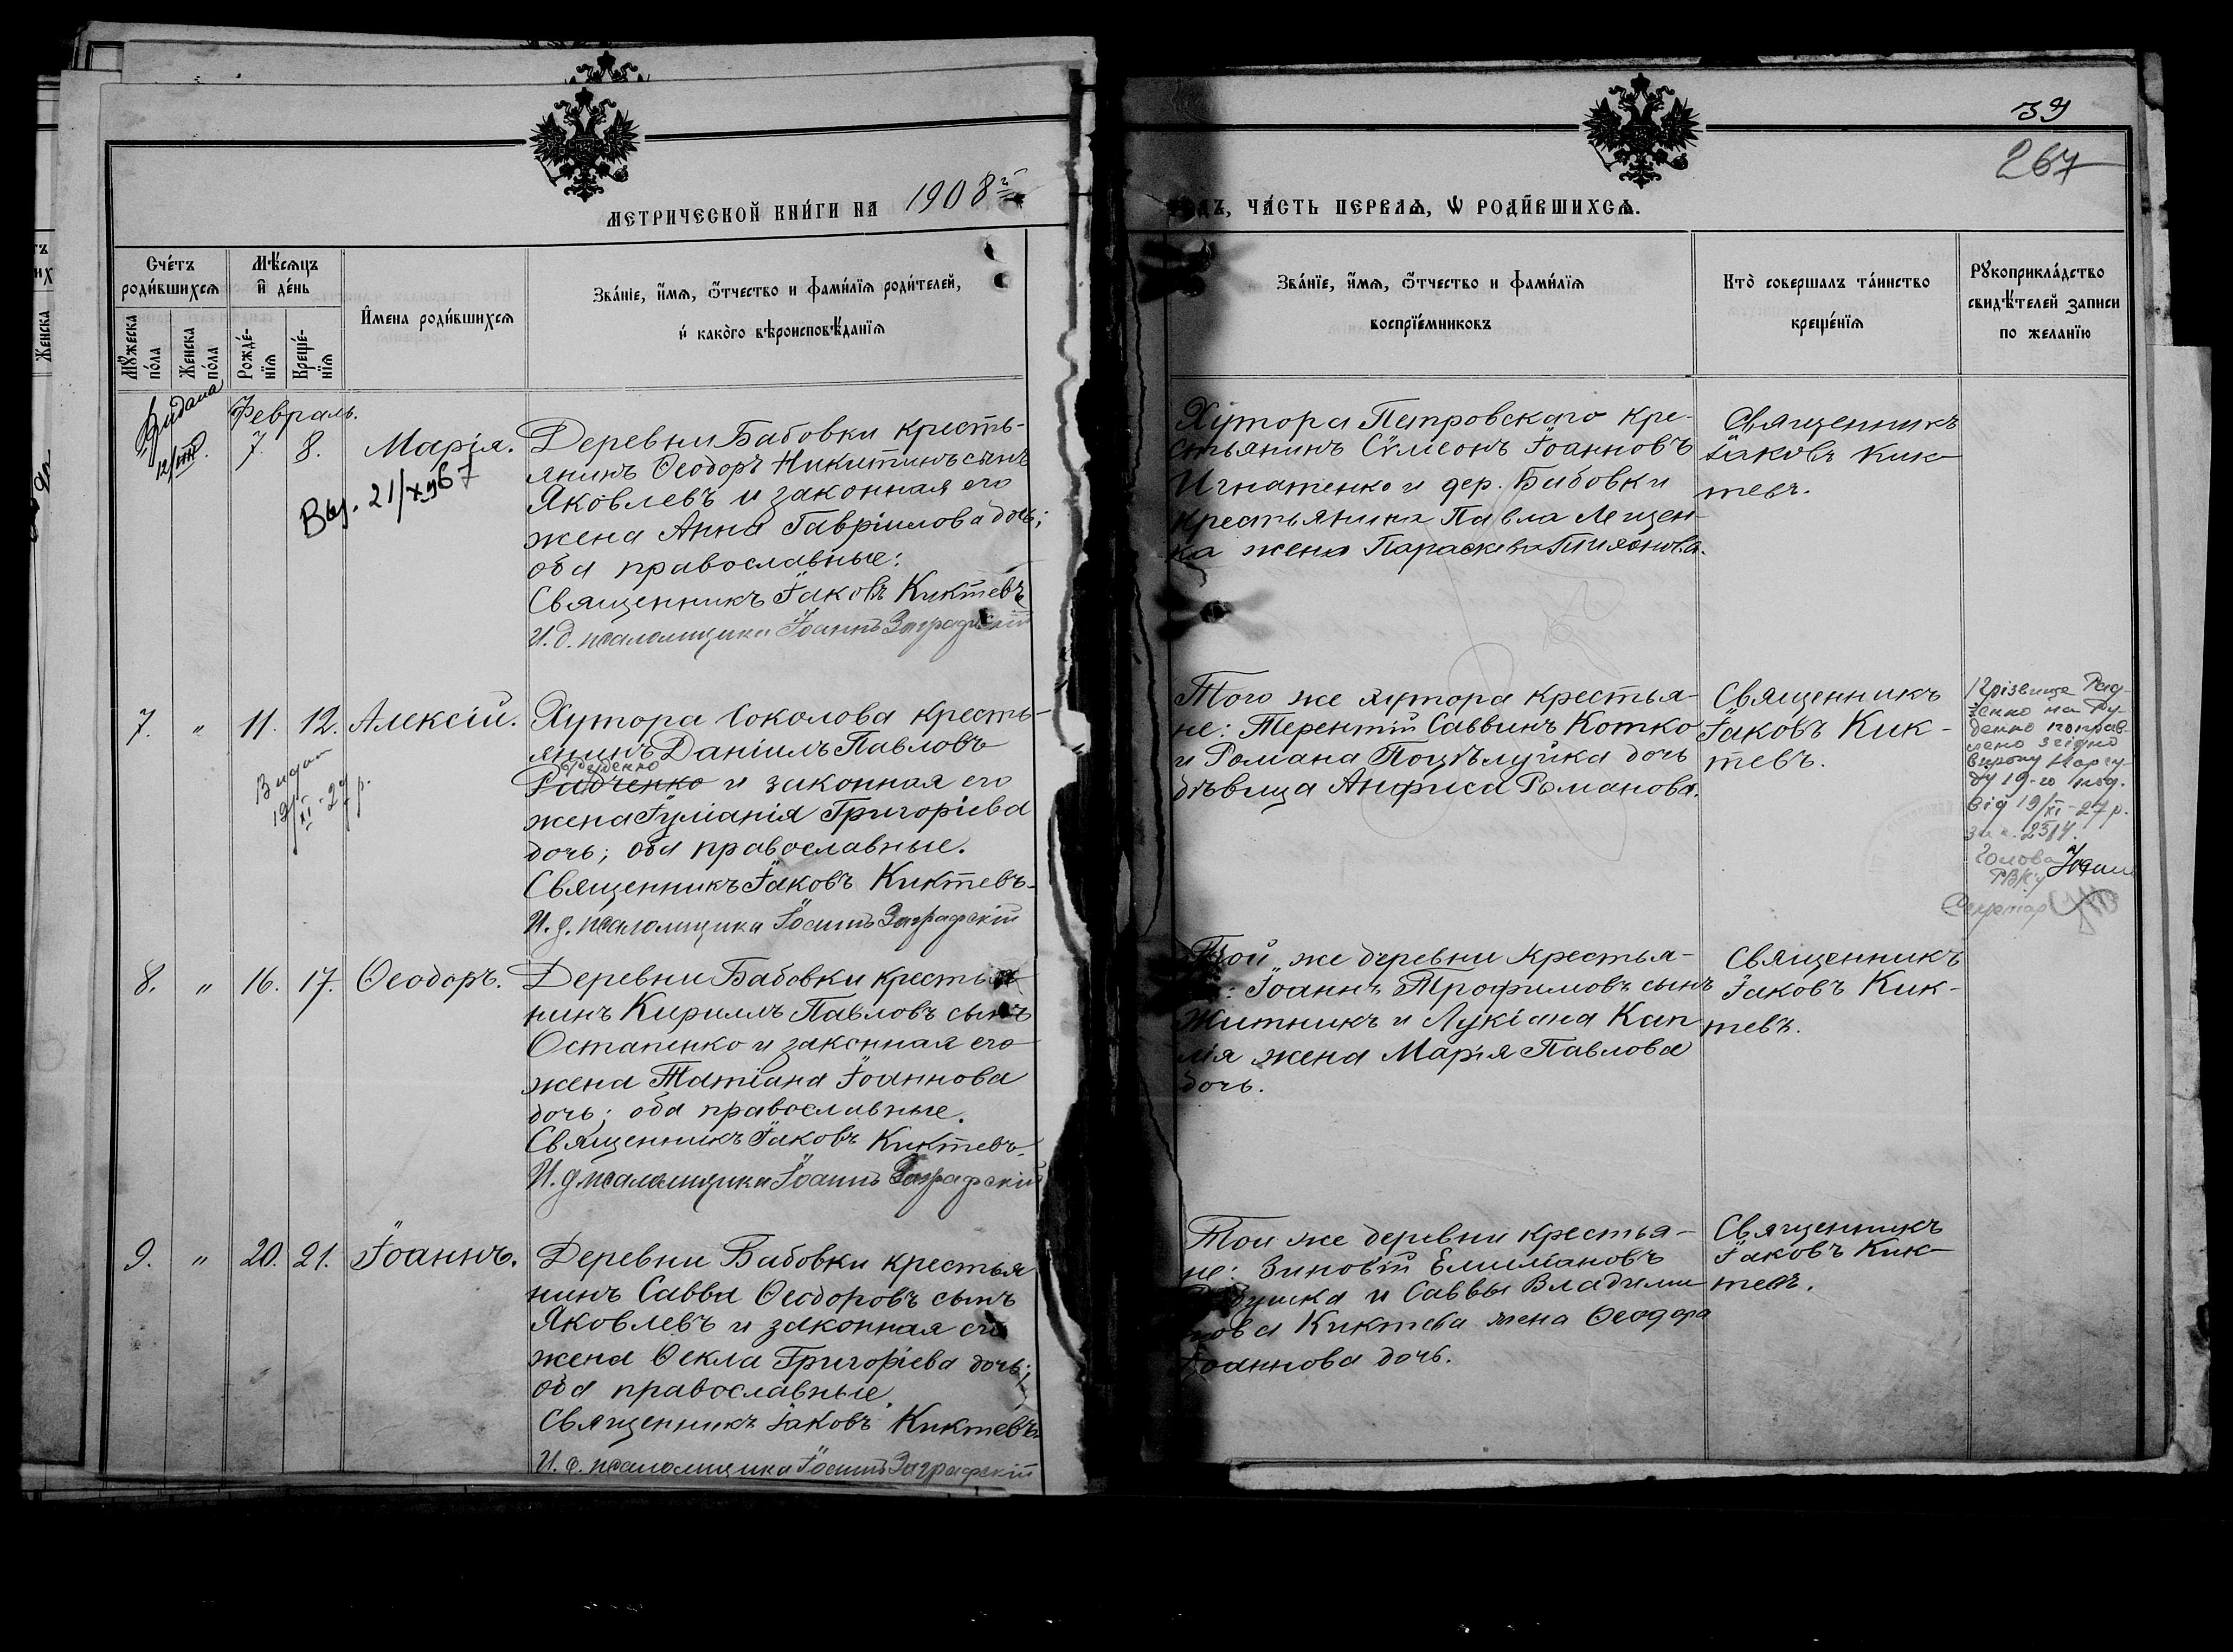 39
267
МЕТРИЧЕСКОЙ КНИ́ГИ НА 1908й
ЧА́СТЬ ПЕРВАѦ, Ѡ РОДИ́ВШИХСѦ.
Сче́тъ роди́вшихсѧ
Мѣ́сѧцъ и҆ де́нь
И҆мена роди́вшихсѧ
Зва́нїе, и҆́мѧ, ѻ҆́тчество и фами́лїѧ роди́телей,
и҆ како́гѡ вѣроисповѣ́данїѧ
Мꙋ́жеска по́ла
Женска по́ла
Рожде́нїѧ
Креще́нїѧ
Зва́нїе, и҆́мѧ, ѻ҆́тчество и фами́лїѧ
воспрїе́мниковъ
Кто̀ совершалъ та́инство
креще́нїѧ
Рꙋкоприкла́дство
свидѣ́телей записи
по желанїю
Женска
Видана
Февраль.
7. 8. Марія.
Выд. 21/X 967
Деревни Бабовки кресть-
янинъ Ѳеодоръ Никитинъ сынъ
Яковлевъ и законная его
жена Анна Гавріилова дочь;
оба православные:
Священникъ Іаковъ Киктевъ
И. д. псаломщика Іоаннъ Заграфскій
Хутора Петровскаго кре-
стьянинъ Сѵмеонъ Іоанновъ
Игнатенко и дер. Бабовки
крестьянина Павла Лещен-
ка жена Параскева
Священникъ
Іаковъ Кик-
тевъ.
7. „ 11. 12. Алексій.
Видан
19/XI-27 р.
Хутора Соколова кресть-
янинъ Даніилъ Павловъ
Руденко
Радченко и законная его
жена Іуліанія Григоріева
дочь; оба православные.
Священникъ Іаковъ Киктевъ
И. д. псаломщика Іоаннъ Заграфскій
Того же хутора крестья-
не: Терентій Саввинъ Котко
и Романа Поцѣлуйка дочь
дѣвица Анфиса Романова.
Священникъ
Іаковъ Кик-
тевъ.
Прізвище Рад-
ченко на Ру-
денко поправ-
лено згідно
вироку Нарсу-
ду 19-го
від 19/XI-27 р.
за №. 2314.
Голова
РВКу
Секретар
8. „ 16. 17. Ѳеодоръ.
Деревни Бабовки крестья
нинъ Кириллъ Павловъ сынъ
Остапенко и законная его
жена Татіана Іоаннова
дочь; оба православные.
Священникъ Іаковъ Киктевъ.
И. д. псаломщика Іоаннъ Заграфскій
Той же деревни крестья-
: Іоаннъ Трофимовъ сынъ
Житникъ и Лукіана Кап
лія жена Марія Павлова
дочь.
Священникъ
Іаковъ Кик-
тевъ.
9. „ 20. 21. Іоаннъ.
Деревни Бабовки крестья
нинъ Савва Ѳеодоровъ сынъ
Яковлевъ и законная его
жена Ѳекла Григоріева дочь;
оба православные.
Священникъ Іаковъ Киктевъ.
И. д. псаломщика Іоаннъ Заграфскій
Той же деревни крестья-
не: Зиновій Емиліановъ
и Саввы Владими
рова Киктева жена Ѳеодора
Іоаннова дочь.
Священникъ
Іаковъ Кик-
тевъ.